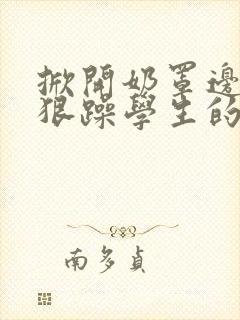 掀開奶罩邊
狠躁學生的
南多貞